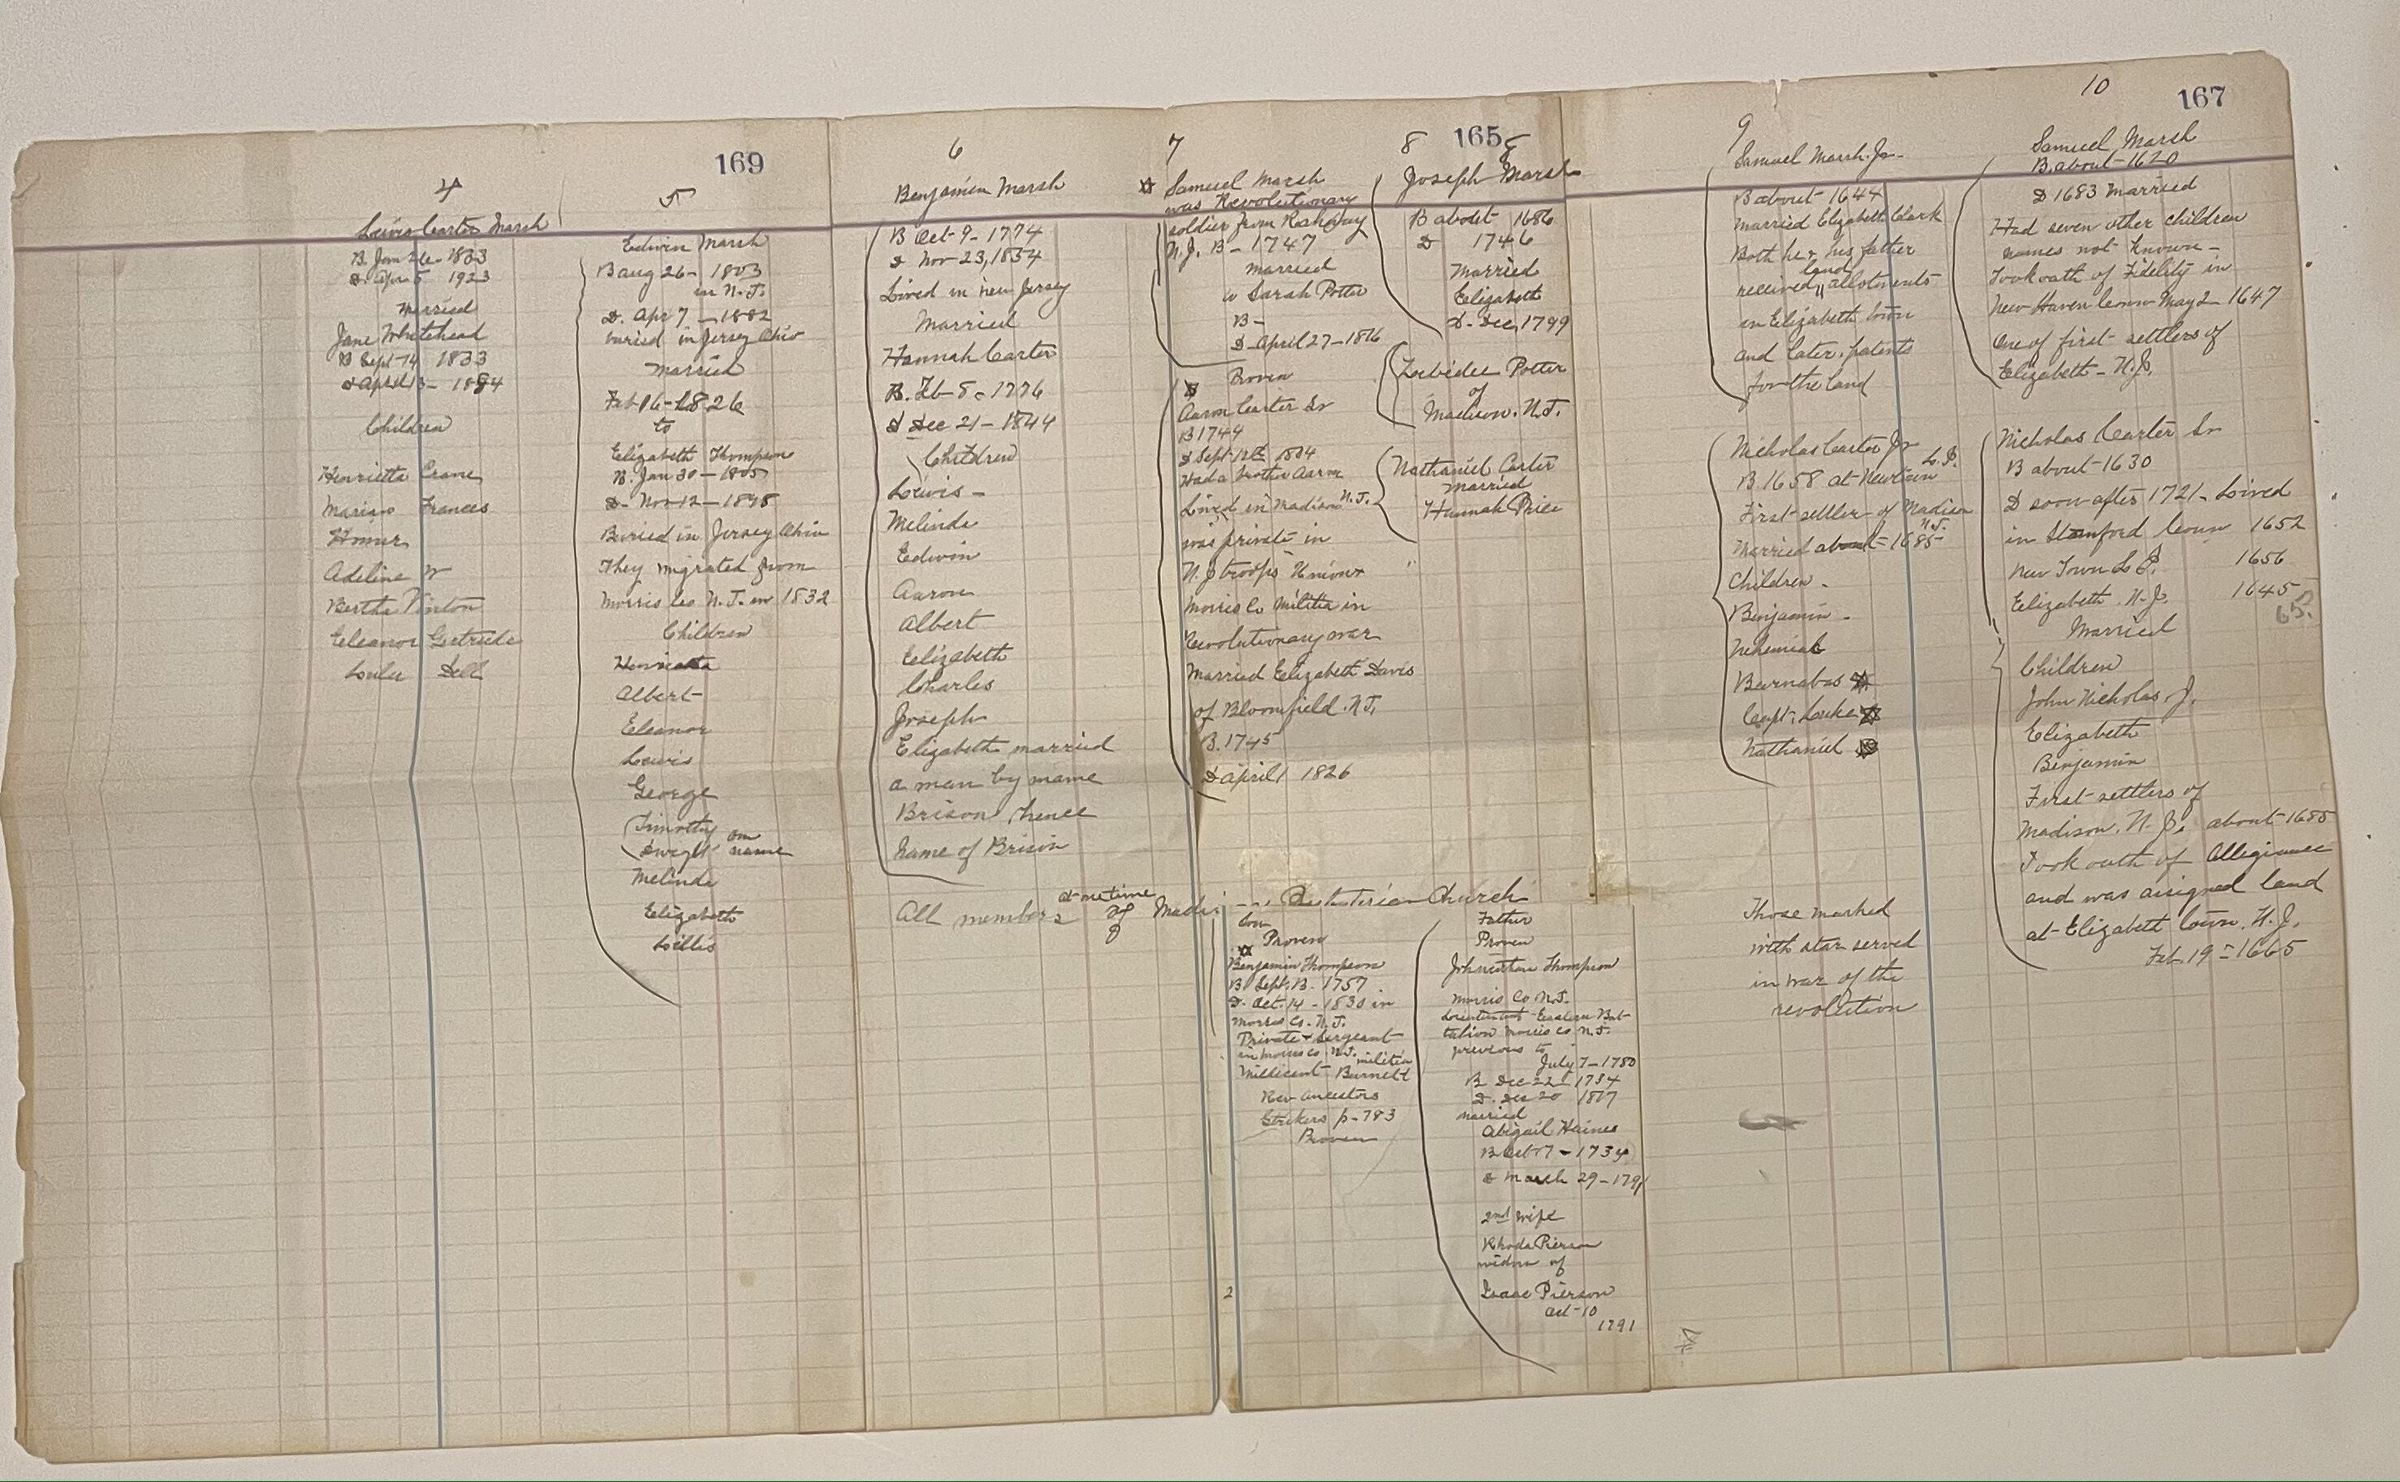 169
4
Lewis Carter Marsh
B. Jan 26 - 1833
D. Apr 5 1923
Married
Jane Whitehead
B Sept 14 1833
D April 13 - 1884
Children
Henrietta Crane
Marian Frances
Homer
Adeline W
Bertha Vinton
Eleanor Gertrude
Dell
5
Edwin Marsh
B Aug 26 - 1803
in N.J.
D. Apr 7 - 1882
buried in Jersey Ohio
Married
Feb 16 - 1826
to
Elizabeth Thompson
B. Jan 30 - 1805
D - Nov - 12 - 1898
Buried in Jersey Ohio
They migrated from
Morris Co N.J. in 1832
Children
Henrietta
Albert
Eleanor
Lewis
George
Timothy
Dwight
one name
Melinda
Elizabeth
Willis
6
Benjamin Marsh
B Oct - 9 - 1774
D Nov - 23, 1854
Lived in New Jersey
Married
Hannah Carter
B. Feb - 8 - 1776
D Dec 21 - 1844
Children
Lewis -
Melinda
Edwin
Aaron
Albert
Elizabeth
Charles
Joseph
Elizabeth married
a man by name
Brison, hence
name of Brison
All members at one time of Presbyterian Church
7
☆ Samuel Marsh
was Revolutionary
soldier from Rahway
N.J. B - 1747
Married
to Sarah Potter
B -
D - April 27 - 1816
Proven
☆
Aaron Carter Sr
B 1744
D Sept 12th 1804
Had a brother Aaron
Lived in Madison N.J.
was private in
N.J troops
Morris Co Militia in
Revolutionary war
Married Elizabeth Davis
of Bloomfield. N.J.
B. 1745
D April 1 1826
165
8
8
Joseph Marsh
B about 1686
D 1746
Married
Elizabeth
D - Dec, 1799
Potter
of
Madison. N.J.
Nathaniel Carter
Married
Hannah Price
Son
Proven
☆
Benjamin Thompson
B Sept. 13 - 1757
D - Oct. 14 - 1830 in
Morris Co - N.J.
Private & Sergeant
in Morris Co. N.J. militia
Millicent Burnett
Rev ancestors
p - 783
Proven
2
Father
Proven
Thompson
Morris Co N.J.
Eastern Bat
talion Morris Co N.J.
previous to
July 7 - 1780
B Dec 22 - 1734
D. Dec 20 1807
married
Abigail Haines
B Oct 7 - 1734
D March 29 - 1791
2nd wife
Rhoda Pierson
widow of
Isaac Pierson
Oct - 10
1791
9
Samuel Marsh. Jr.
B about - 1644
Married Elizabeth Clark
Both he & his father
received land allotments
in Elizabeth town
and later patents
for the land
Nicholas Carter Jr
B 1658 at Newtown L.I.
First settler of Madison
N.J.
Married about - 1685
Children -
Benjamin -
Nehemiah
Barnabas ☆
Capt. Luke ☆
Nathaniel ☆
Those marked
with star served
in war of the
revolution
10
167
Samuel Marsh
B. about - 1620
D 1683 Married
Had seven other children
names not known -
Took oath of Fidelity in
New Haven Conn May 2 - 1647
One of first settlers of
Elizabeth - N.J.
Nicholas Carter Sr
B about - 1630
D soon after 1721 - Lived
in Stamford Conn 1652
New Town L I. 1656
Elizabeth. N.J. 1645
65?
Married
Children
John Nicholas. J.
Elizabeth
Benjamin
First settlers of
Madison. N.J. about - 1685
Took oath of Allegiance
and was assigned land
at Elizabeth town. N.J.
Feb. 19 - 1665